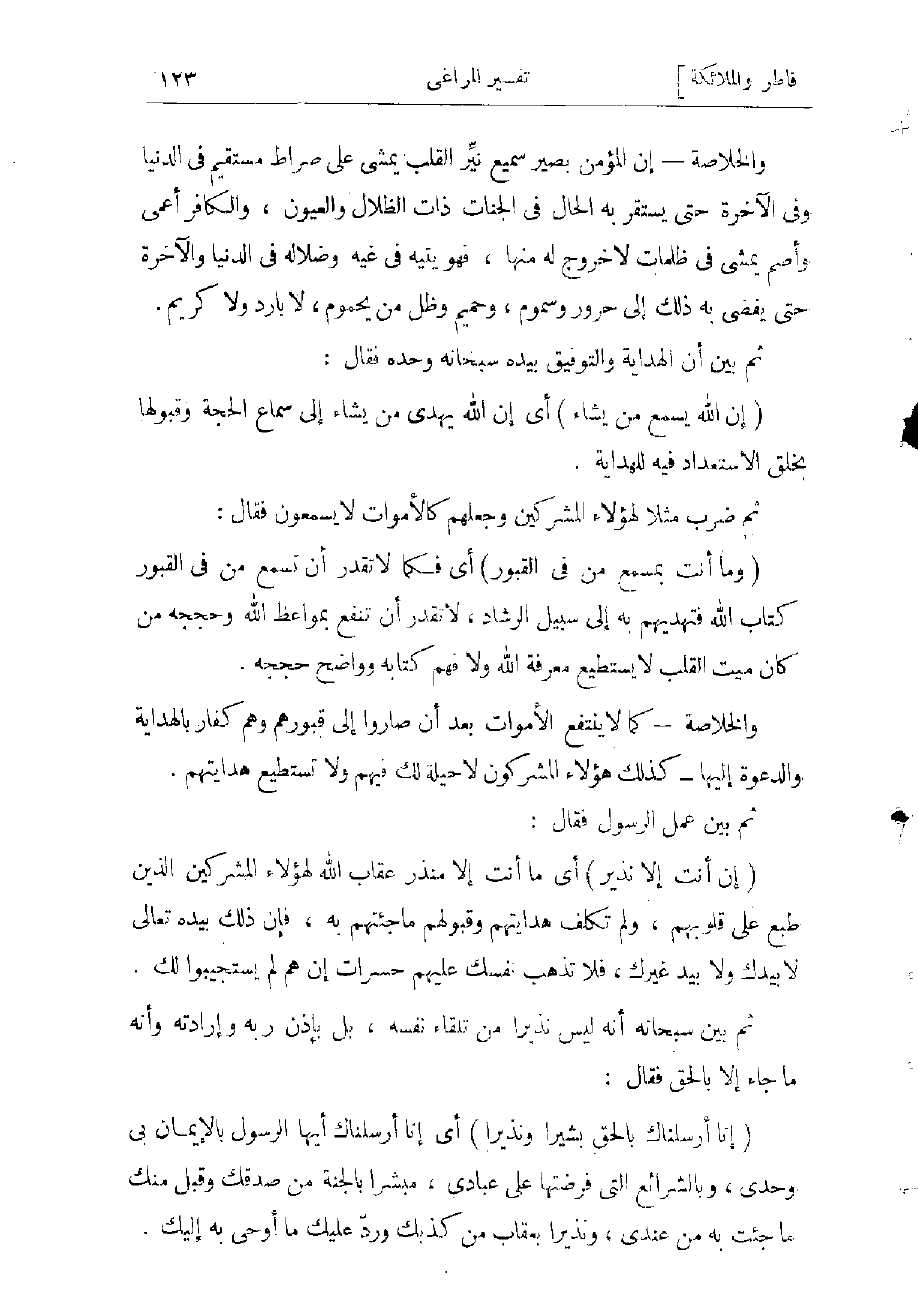 فاطر والملائكة ] تفسير المراغى ١٢٣
والخلاصة — إن المؤمن بصير سميع نيِّر القلب يمشى على صراط مستقيم فى الدنيا
وفى الآخرة حتى يستقر به الحال فى الجنات ذات الظلال والعيون ، والكافر أعمى
وأصم يمشى فى ظلمات لاخروج له منها ، فهو يتيه فى غيه وضلاله فى الدنيا والآخرة
حتى يفضى به ذلك إلى حرور وسموم ، وحميم وظل من يحموم ، لا بارد ولا كريم .
ثم بين أن الهداية والتوفيق بيده سبحانه وحده فقال :
( إن الله يسمع من يشاء ) أى إن الله يهدى من يشاء إلى سماع الحجة وقبولها
بخلق الاستعداد فيه للهداية .
ثم ضرب مثلا لهؤلاء المشركين وجعلهم كالأموات لايسمعون فقال :
( وما أنت بمسمع من فى القبور ) أى فكما لاتقدر أن تسمع من فى القبور
كتاب الله فتهديهم به إلى سبيل الرشاد ، لاتقدر أن تنفع بمواعظ الله وحججه من
كان ميت القلب لايستطيع معرفة الله ولا فهم كتابه وواضح حججه .
والخلاصة — كما لاينتفع الأموات بعد أن صاروا إلى قبورهم وهم كفار بالهداية
والدعوة إليها — كذلك هؤلاء المشركون لاحيلة لك فيهم ولا تستطيع هدايتهم .
ثم بين عمل الرسول فقال :
( إن أنت إلا نذير ) أى ما أنت إلا منذر عقاب الله لهؤلاء المشركين الذين
طبع على قلوبهم ، ولم تكلف هدايتهم وقبولهم ماجئتهم به ، فإن ذلك بيده تعالى
لابيدك ولا بيد غيرك ، فلا تذهب نفسك عليهم حسرات إن هم لم يستجيبوا لك .
ثم بين سبحانه أنه ليس نذيرا من تلقاء نفسه ، بل بإذن ربه وإرادته وأنه
ماجاء إلا بالحق فقال :
( إنا أرسلناك بالحق بشيرا ونذيرا ) أى إنا أرسلناك أيها الرسول بالإيمان بى
وحدى ، وبالشرائع التى فرضتها على عبادى ، مبشرا بالجنة من صدقك وقبل منك
ماجئت به من عندى ، ونذيرا بعقاب من كذبك وردّ عليك ما أوحى به إليك .